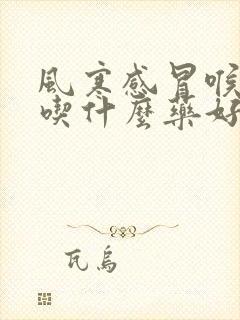 風寒感冒喉
喫什麼藥好
瓦烏